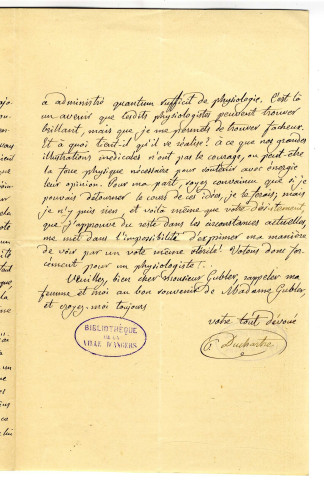 a administré quantum sufficit de physiologie. C'est là
un avenir que lesdits physiologistes peuvent trouver
brillant, mais que je me permets de trouver fâcheux.
Et à quoi tient-il qu'il se réalise? à ce que nos grandes
illustrations médicales n'ont pas le courage, ou peut-être
la force physique nécessaire pour soutenir avec énergie
leur opinion. Pour ma part, soyez convaincu que si je
pouvais détourner le cours de ces idées, je le ferais; mais
je n'y puis rien et voilà même que votre désistement,
que j'approuve du reste dans les circonstances actuelles,
me met dans l'impossibilité d'exprimer ma manière
de voir par un vote même stérile! Votons donc for-
cément pour un physiologiste!.
Veuillez, bien cher Monsieur Gubler, rappeler ma
femme et moi au bon souvenir de Madame Gubler,
et croyez-moi toujours
votre tout dévoué
Duchartre
BIBLIOTHÈQUE
DE LA
VILLE D'ANGERS